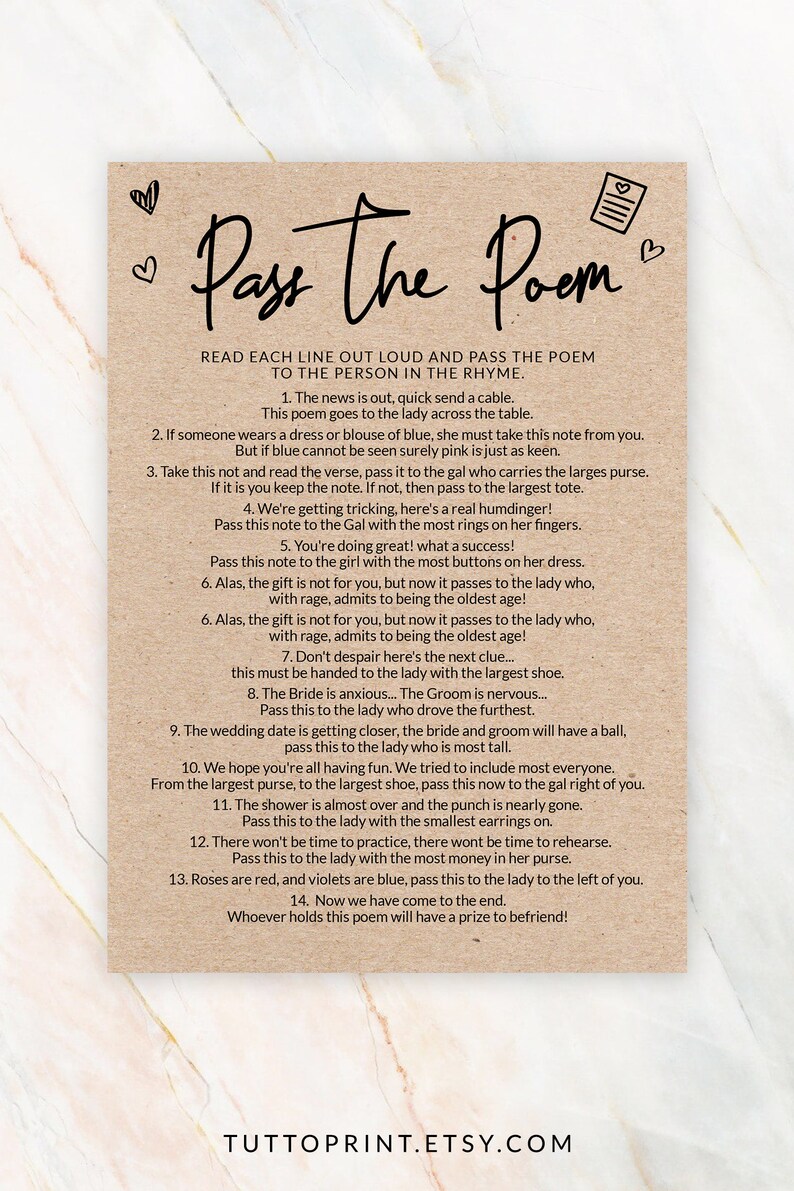 Pass The Poem
READ EACH LINE OUT LOUD AND PASS THE POEM
TO THE PERSON IN THE RHYME.
1. The news is out, quick send a cable.
This poem goes to the lady across the table.
2. If someone wears a dress or blouse of blue, she must take this note from you.
But if blue cannot be seen surely pink is just as keen.
3. Take this not and read the verse, pass it to the gal who carries the larges purse.
If it is you keep the note. If not, then pass to the largest tote.
4. We're getting tricking, here's a real humdinger!
Pass this note to the Gal with the most rings on her fingers.
5. You're doing great! what a success!
Pass this note to the girl with the most buttons on her dress.
6. Alas, the gift is not for you, but now it passes to the lady who,
with rage, admits to being the oldest age!
6. Alas, the gift is not for you, but now it passes to the lady who,
with rage, admits to being the oldest age!
7. Don't despair here's the next clue...
this must be handed to the lady with the largest shoe.
8. The Bride is anxious... The Groom is nervous...
Pass this to the lady who drove the furthest.
9. The wedding date is getting closer, the bride and groom will have a ball,
pass this to the lady who is most tall.
10. We hope you're all having fun. We tried to include most everyone.
From the largest purse, to the largest shoe, pass this now to the gal right of you.
11. The shower is almost over and the punch is nearly gone.
Pass this to the lady with the smallest earrings on.
12. There won't be time to practice, there wont be time to rehearse.
Pass this to the lady with the most money in her purse.
13. Roses are red, and violets are blue, pass this to the lady to the left of you.
14. Now we have come to the end.
Whoever holds this poem will have a prize to befriend!
TUTTOPRINT.ETSY.COM